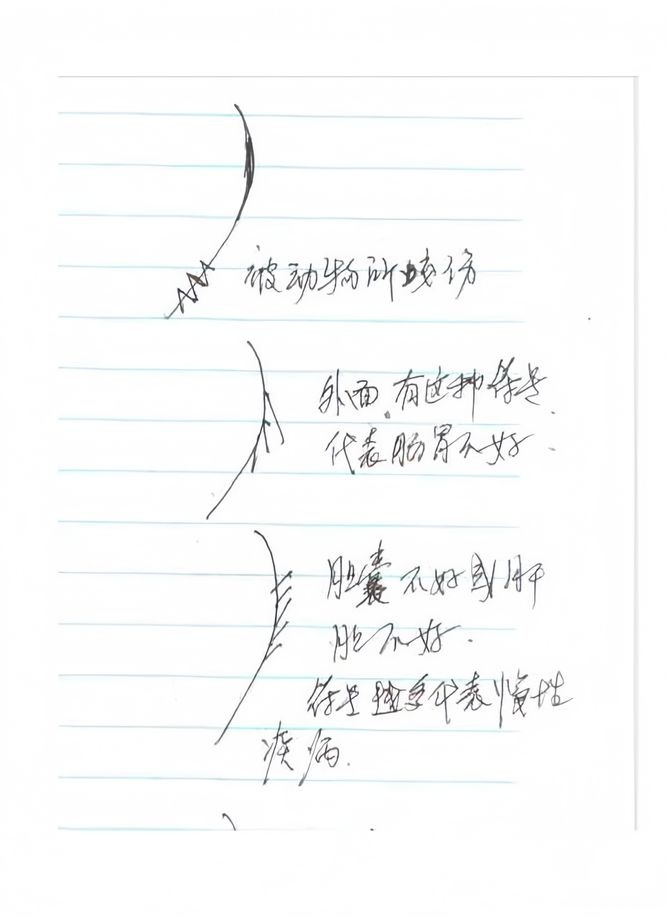 被动物所咬伤
外面.有这种符号.
代表肠胃不好.
胆囊不好或肝
胆不好.
符号越多代表慢性
疾病.